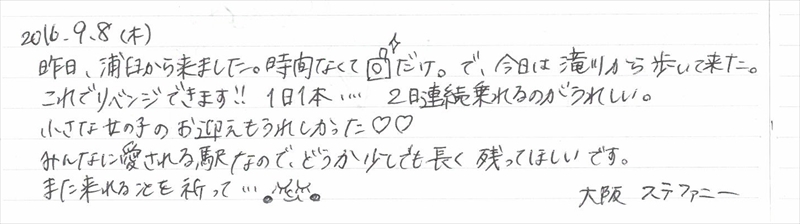 2016.9.8(木)
昨日、浦臼から来ました。時間なくてだけ。で、今日は滝川から歩いて来た。
これでリベンジできます!! 1日1本…. 2日連続乗れるのがうれしい。
小さな女の子のお迎えもうれしかった♡♡
みんなに愛される駅なので、どうか少しでも長く残ってほしいです。
また来れることを祈って…。
大阪 ステファニー